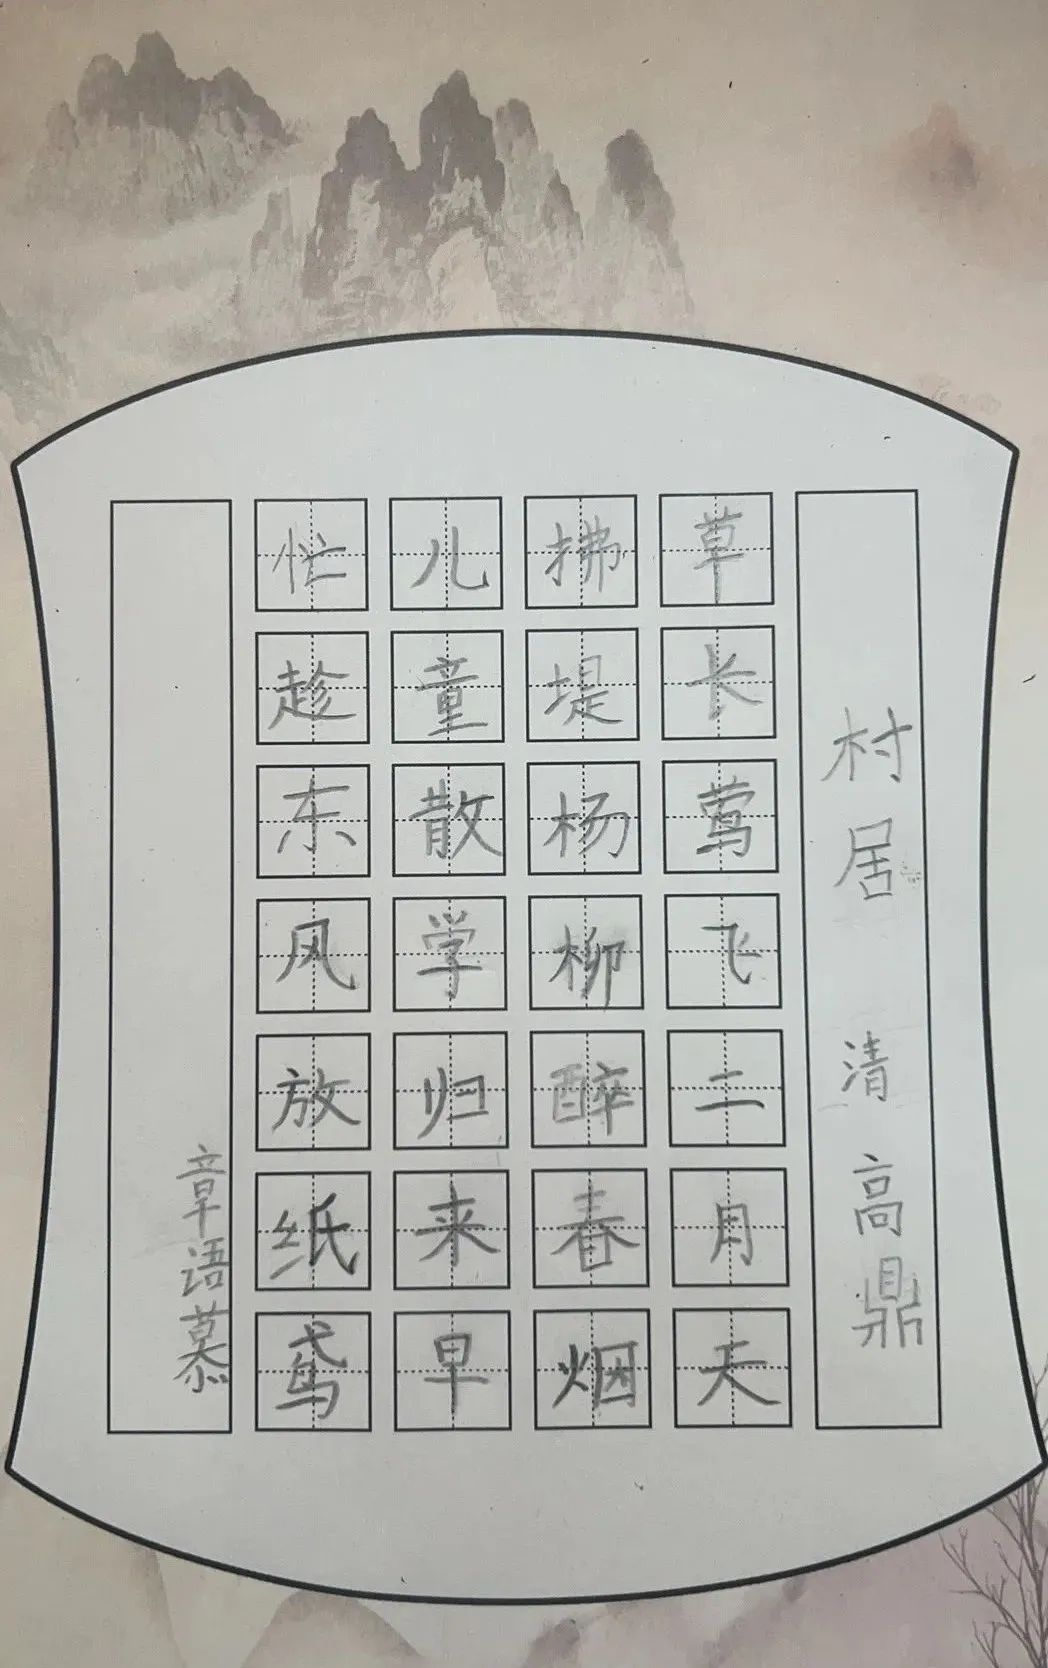 村居 清 高鼎
草长莺飞二月天
拂堤杨柳醉春烟
儿童散学归来早
忙趁东风放纸鸢
章语慕